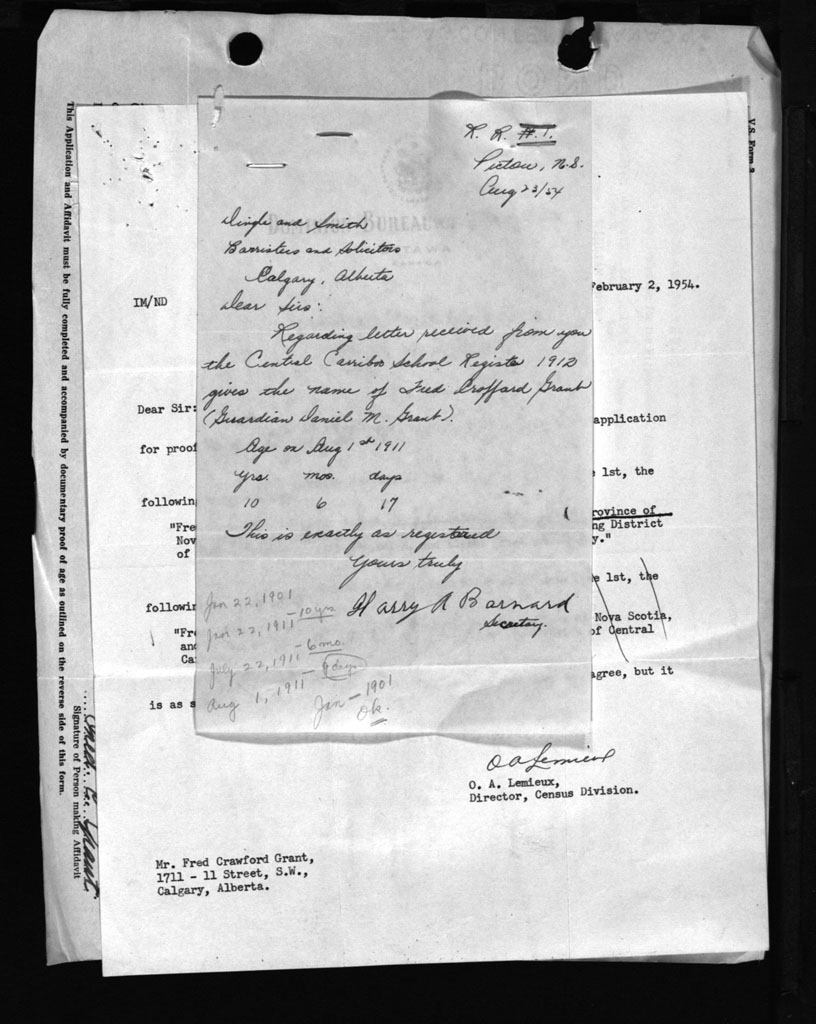 R. R. #1.
Pictou, N.S.
Aug 23/54
Dingle and Smith
Barristers and Solicitors
Calgary, Alberta
Dear Sirs:
Regarding letter received from you
the Central Carriboo School Register 1912
gives the name of Fred Croffard Grant
(Guardian Daniel M. Grant).
Age on Aug 1st 1911
yrs. mos. days
10 6 17
This is exactly as registered
Yours truly
Harry A Barnard
Secretary.
Jan 22, 1901
Jan 22, 1911 - 10 yrs
July 22, 1911 - 6 mo.
Aug 1, 1911 - days
Jan - 1901
Ok.
DOMINION BUREAU
OTTAWA
CANADA
February 2, 1954.
IM/ND
Dear Sir:
application
for proof
e 1st, the
following
rovince of
"Fre
ng District
Nov
y."
of
e 1st, the
followin
Nova Scotia,
"Fre
of Central
and
Ca
agree, but it
is as s
O A Lemieux
O. A. Lemieux,
Director, Census Division.
Mr. Fred Crawford Grant,
1711 - 11 Street, S.W.,
Calgary, Alberta.
This Application and Affidavit must be fully completed and accompanied by documentary proof of age as outlined on the reverse side of this form.
Fred. C. Grant.
Signature of Person making Affidavit
V.S. Form 2